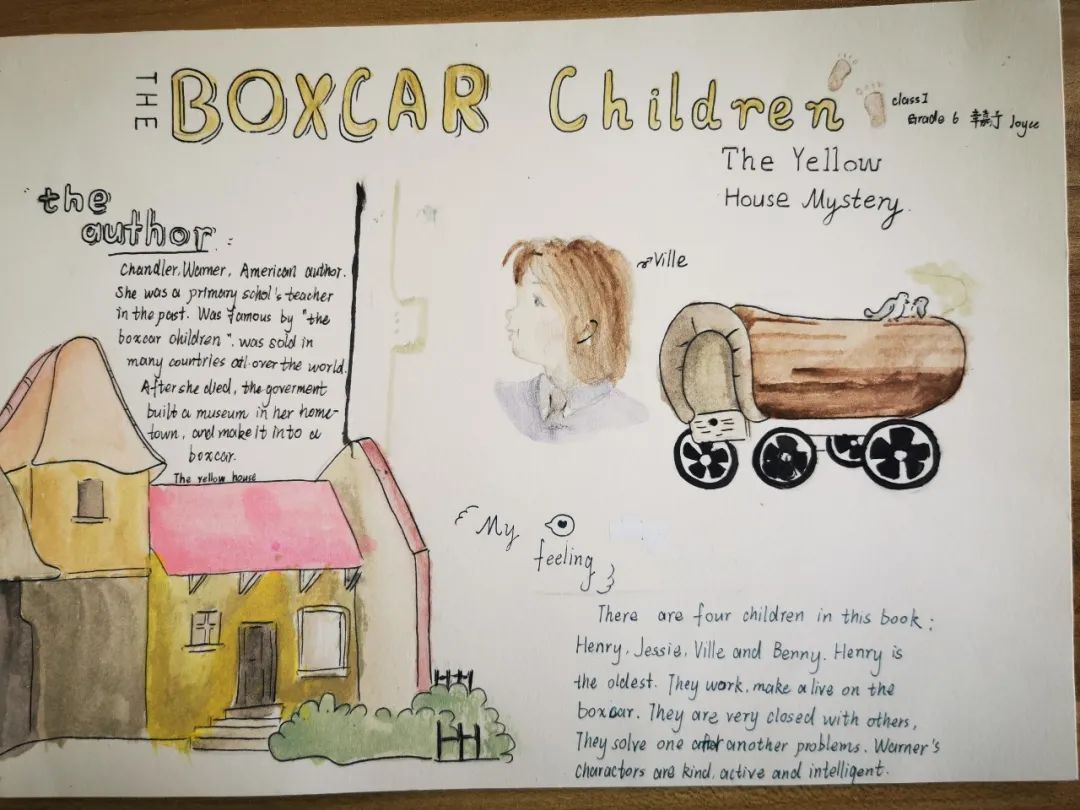 THE BOXCAR Children
class1
Grade 6 Joyce
The Yellow
House Mystery
the
author:
Chandler, Warner, American author.
She was a primary schol's teacher
in the past. Was famous by "the
boxcar children". was sold in
many countries all over the world.
After she died, the goverment
built a museum in her home-
town, and make it into a
boxcar.
The yellow house
Ville
My
feeling
There are four children in this book:
Henry, Jessie, Ville and Benny. Henry is
the oldest. They work, make a live on the
boxcar. They are very closed with others,
They solve one after another problems. Warner's
charactors are kind, active and intelligent.